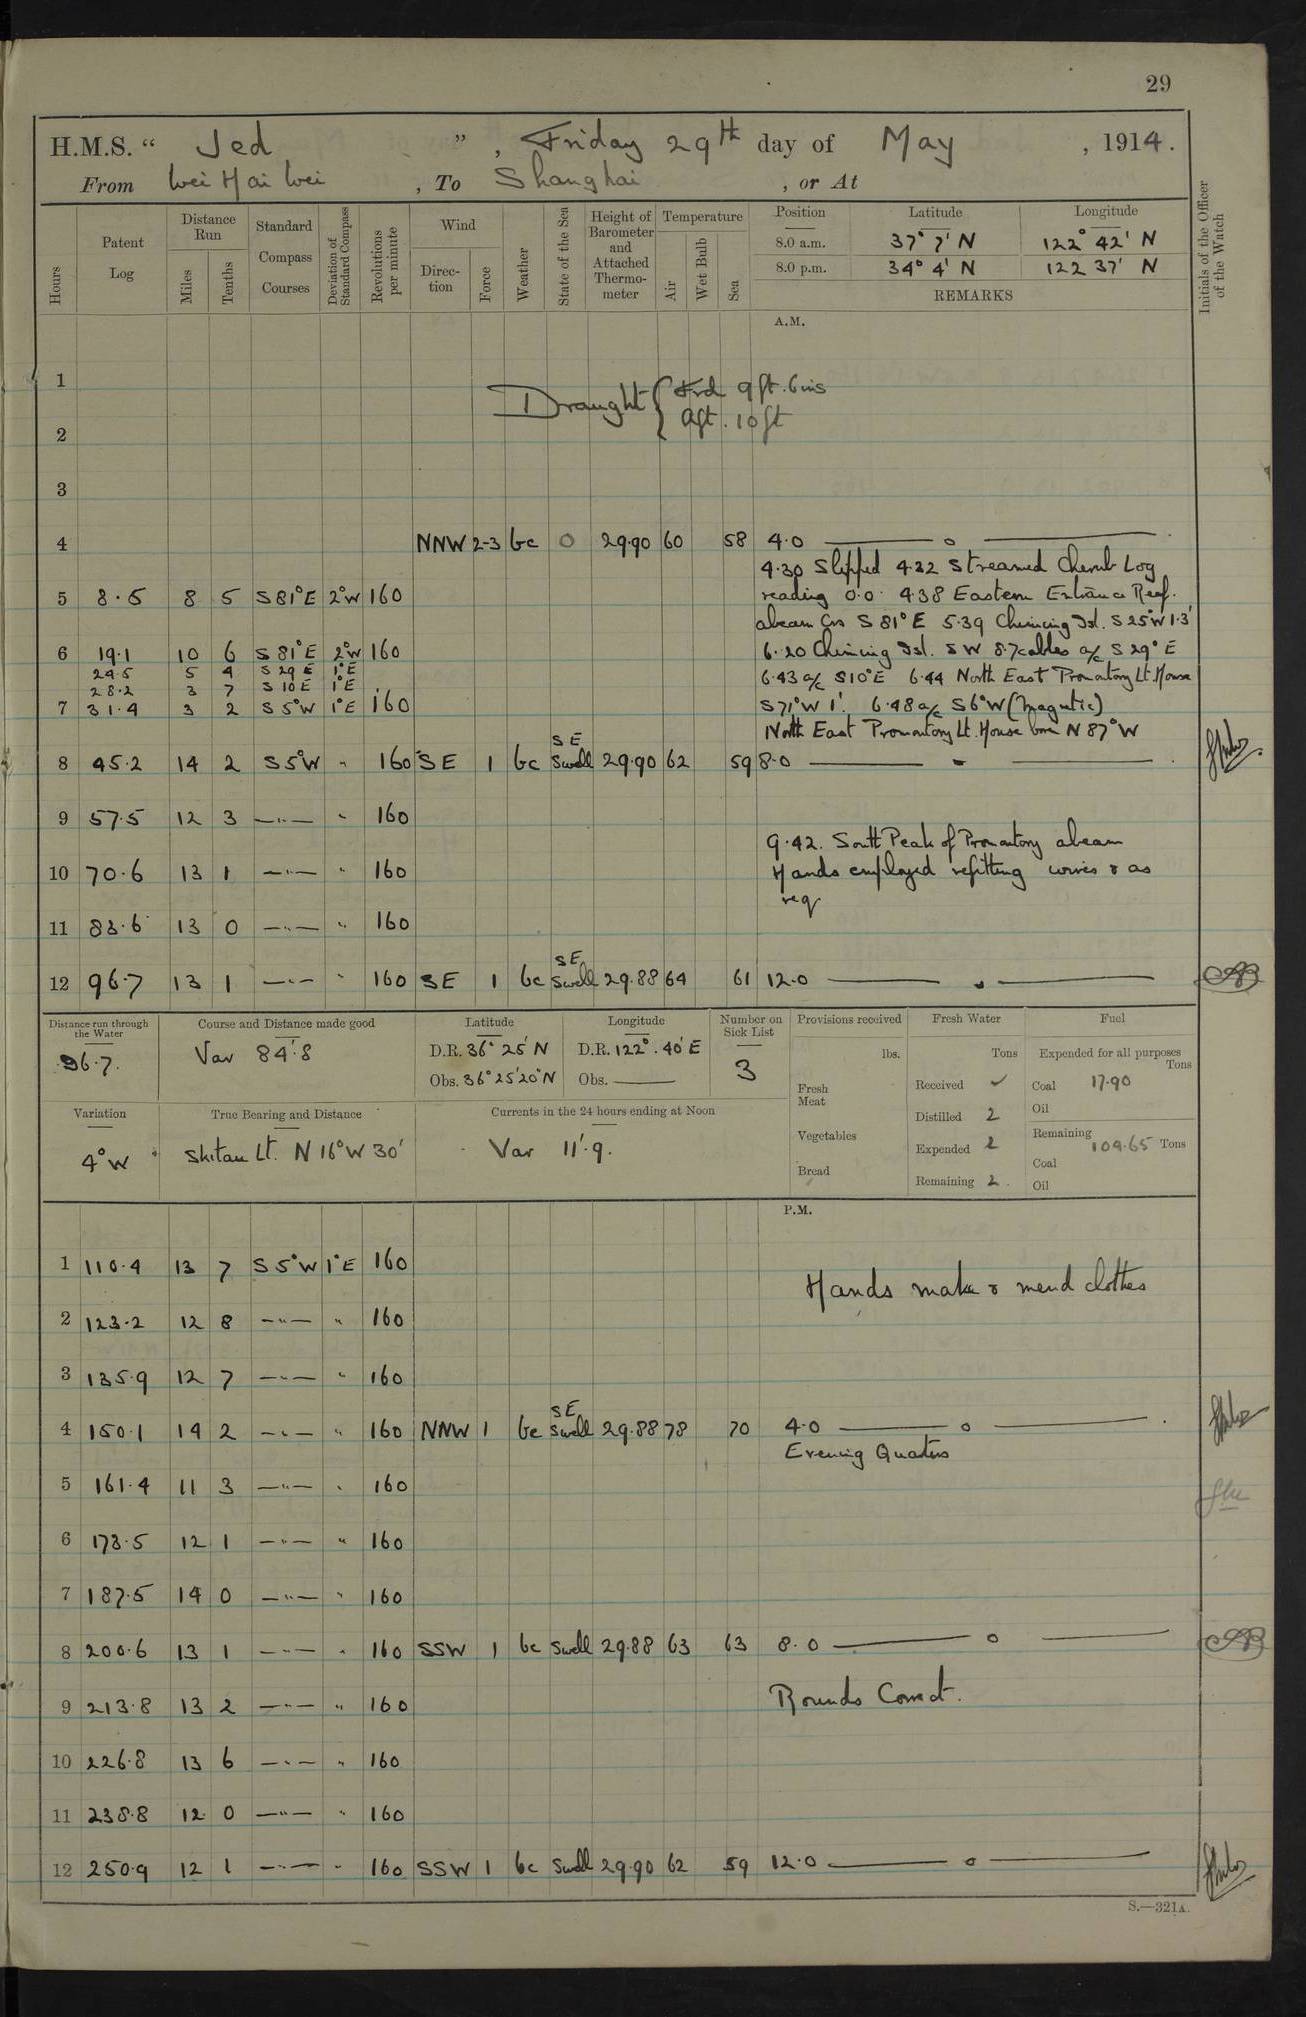 29
H.M.S. “ Jed ” , Friday 29th day of May , 1914.
From Wei Hai Wei , To Shanghai , or At
Hours Patent Log Distance Run Miles Tenths Standard Compass Courses Deviation of Standard Compass Revolutions per minute Wind Direction Force Weather State of the Sea Height of Barometer and Attached Thermometer Temperature Air Wet Bulb Sea Position Latitude Longitude Initials of the Officer of the Watch
8.0 a.m. 37° 7' N 122° 42' N
8.0 p.m. 34° 4' N 122 37' N
REMARKS
A.M.
1
Draught { Frd 9ft. 6ins
Aft. 10ft
2
3
4 NNW 2-3 bc 0 29.90 60 58 4.0
4.30 Slipped 4.32 Streamed Cherub Log
5 8.5 8 5 S81°E 2°W 160 reading 0.0. 4.38 Eastern Entrance Reef.
abeam Crs S 81° E 5.39 Isl. S25°W 1.3'
6 19.1 10 6 S 81°E 2°W 160 6.20 Isl. SW 8.7cables a/c S 29° E
24.5 5 4 S 29 E 1°E 6.43 a/c S10°E 6.44 North East Promontory Lt House
28.2 3 7 S 10 E 1°E
7 31.4 3 2 S 5°W 1°E 160 S71°W 1'. 6.48 a/c S6°W (Magnetic)
North East Promontory Lt. House bore N 87°W
8 45.2 14 2 S5°W " 160 SE 1 bc SE Swell 29.90 62 59 8.0
9 57.5 12 3 —"— " 160
9.42. South Peak of Promontory abeam
10 70.6 13 1 —"— " 160 Hands employed refitting wires & as
req
11 83.6 13 0 —"— " 160
12 96.7 13 1 —"— " 160 SE 1 bc SE Swell 29.88 64 61 12.0
Distance run through the Water Course and Distance made good Latitude Longitude Number on Sick List Provisions received Fresh Water Fuel
96.7. Var 84'.8 D.R. 36° 25' N D.R. 122°. 40' E 3 lbs. Tons Expended for all purposes Tons
Obs. 36°25'20"N Obs. Fresh Meat Received Coal 17.90
Variation True Bearing and Distance Currents in the 24 hours ending at Noon Distilled 2 Oil
4°W Shitau Lt. N 16°W 30' Var 11'.9. Vegetables Expended 2 Remaining 104.65 Tons
Coal
Bread Remaining 2. Oil
P.M.
1 110.4 13 7 S 5°W 1°E 160
Hands make & mend clothes
2 123.2 12 8 —"— " 160
3 135.9 12 7 —"— " 160
4 150.1 14 2 —"— " 160 NNW 1 bc SE Swell 29.88 78 70 4.0
Evening Quarters
5 161.4 11 3 —"— " 160
6 173.5 12 1 —"— " 160
7 187.5 14 0 —"— " 160
8 200.6 13 1 —"— " 160 SSW 1 bc Swell 29.88 63 63 8.0
9 213.8 13 2 —"— " 160 Rounds Correct.
10 226.8 13 6 —"— " 160
11 238.8 12 0 —"— " 160
12 250.9 12 1 —"— " 160 SSW 1 bc Swell 29.90 62 59 12.0
S.—321A.